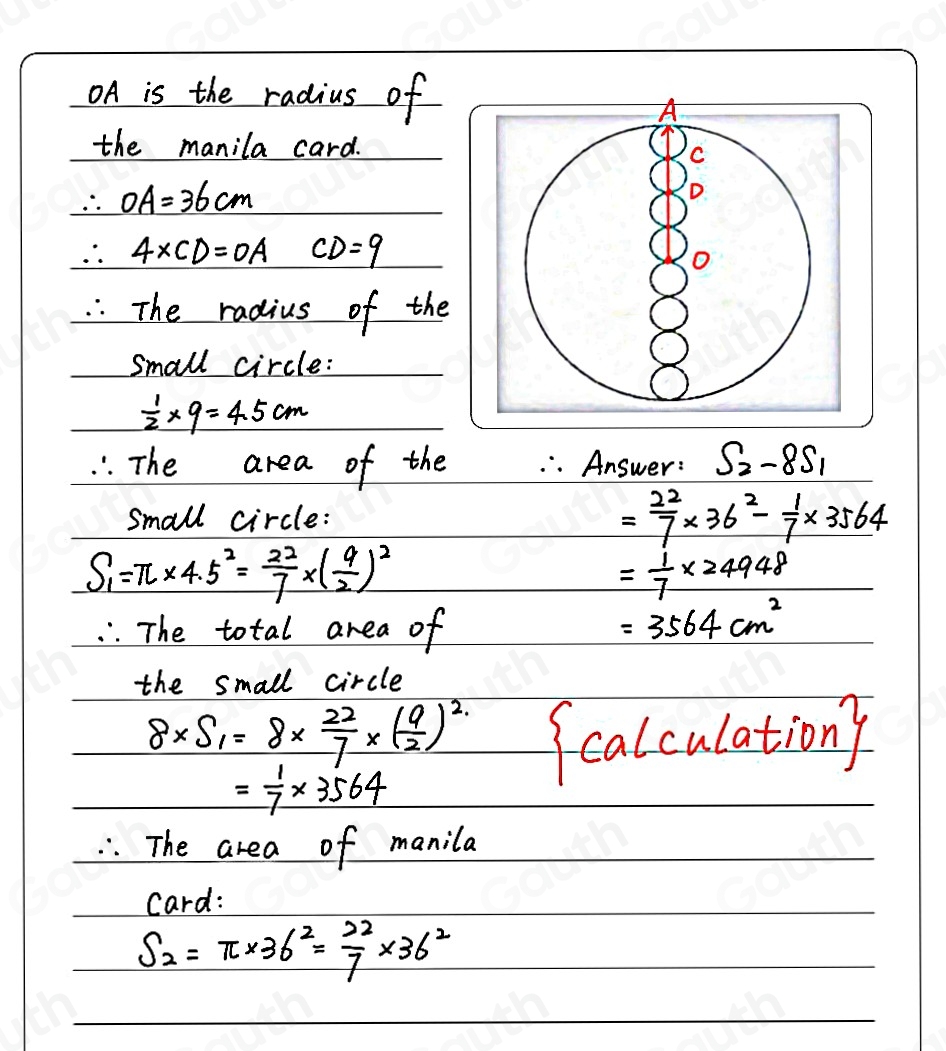 OA is the radius of
the manila card.
∴ OA=36cm
∴ 4×CD=OA CD=9
∴ The radius of the
small circle:
1/2×9=4.5cm
∴ The area of the
small circle:
S₁=π×4.5²=22/7×(9/2)²
∴ The total area of
the small circle
8×S₁=8×22/7×(9/2)².
=1/7×3564
∴ The area of manila
card:
S₂=π×36²=22/7×36²
A
C
D
O
∴ Answer: S₂-8S₁
=22/7×36²-1/7×3564
=1/7×24948
=3564cm²
{calculation}
Gauth